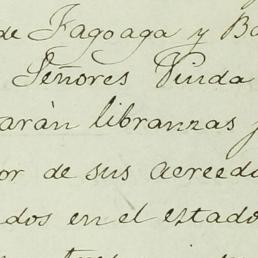 de Fagoaga y Ba
Señores Viuda
arán libranzas
or de sus acreedo
dos en el estado